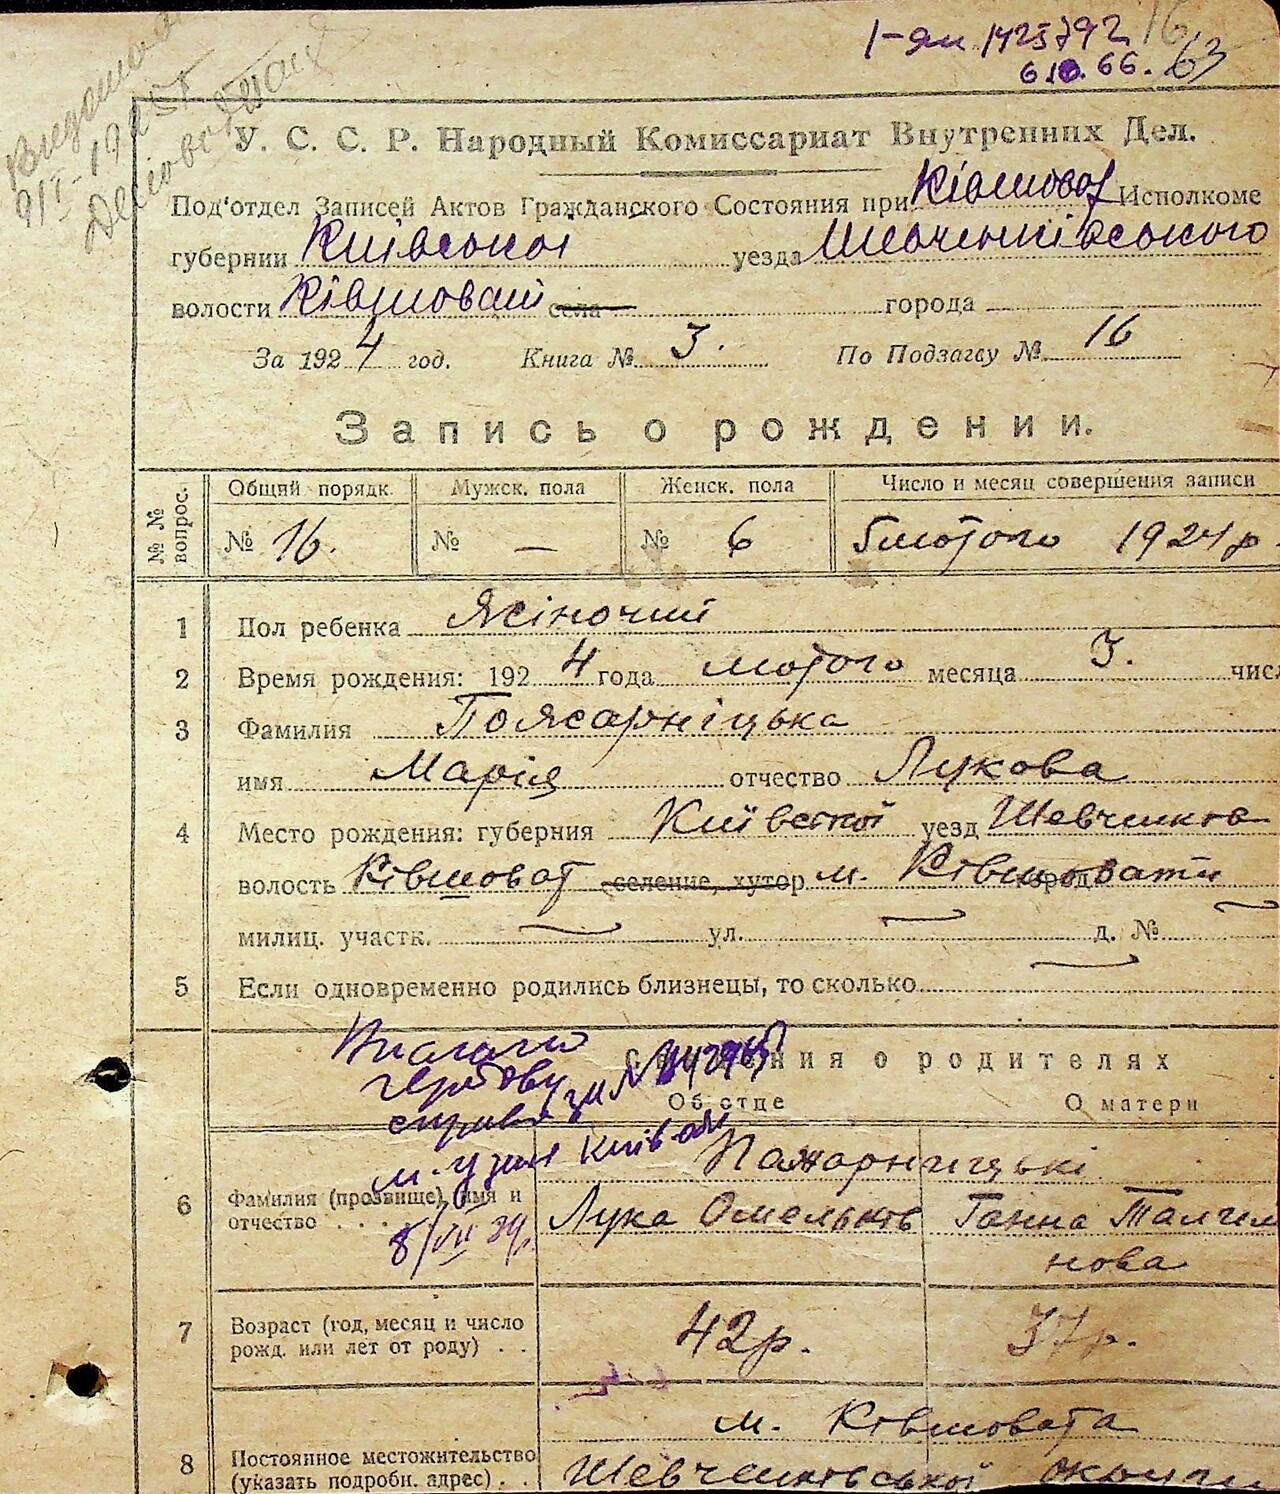 1-ян 1425792 16
6.10.66. 63
У. С. С. Р. Народный Комиссариат Внутренних Дел.
Под'отдел Записей Актов Гражданского Состояния при Ківшоват Исполкоме
губернии Київської уезда Шевченківського
волости Ківшоват села города
За 1924 год. Книга № 3. По Подзагсу № 16
Запись о рождении.
№ № вопрос. Общий порядк. Мужск. пола Женск. пола Число и месяц совершения записи
№ 16. № — № 6 5 лютого 1924 р.
1 Пол ребенка Жіночий
2 Время рождения: 1924 года лютого месяца 3. числ
3 Фамилия Пожарніцька
имя Марія отчество Лукова
4 Место рождения: губерния Київської уезд Шевченків
волость Ківшоват селение, хутор м. Ківшовати
милиц. участк. ул. д. №
5 Если одновременно родились близнецы, то сколько
Сведения о родителях
Об отце О матери
Пожарницькі
6 Фамилия (прозвище), имя и отчество Лука Омельків Ганна Талимо
нова
7 Возраст (год, месяц и число рожд. или лет от роду) 42р. 37р.
м. Ківшовата
8 Постоянное местожительство (указать подробн. адрес) Шевченківської округи